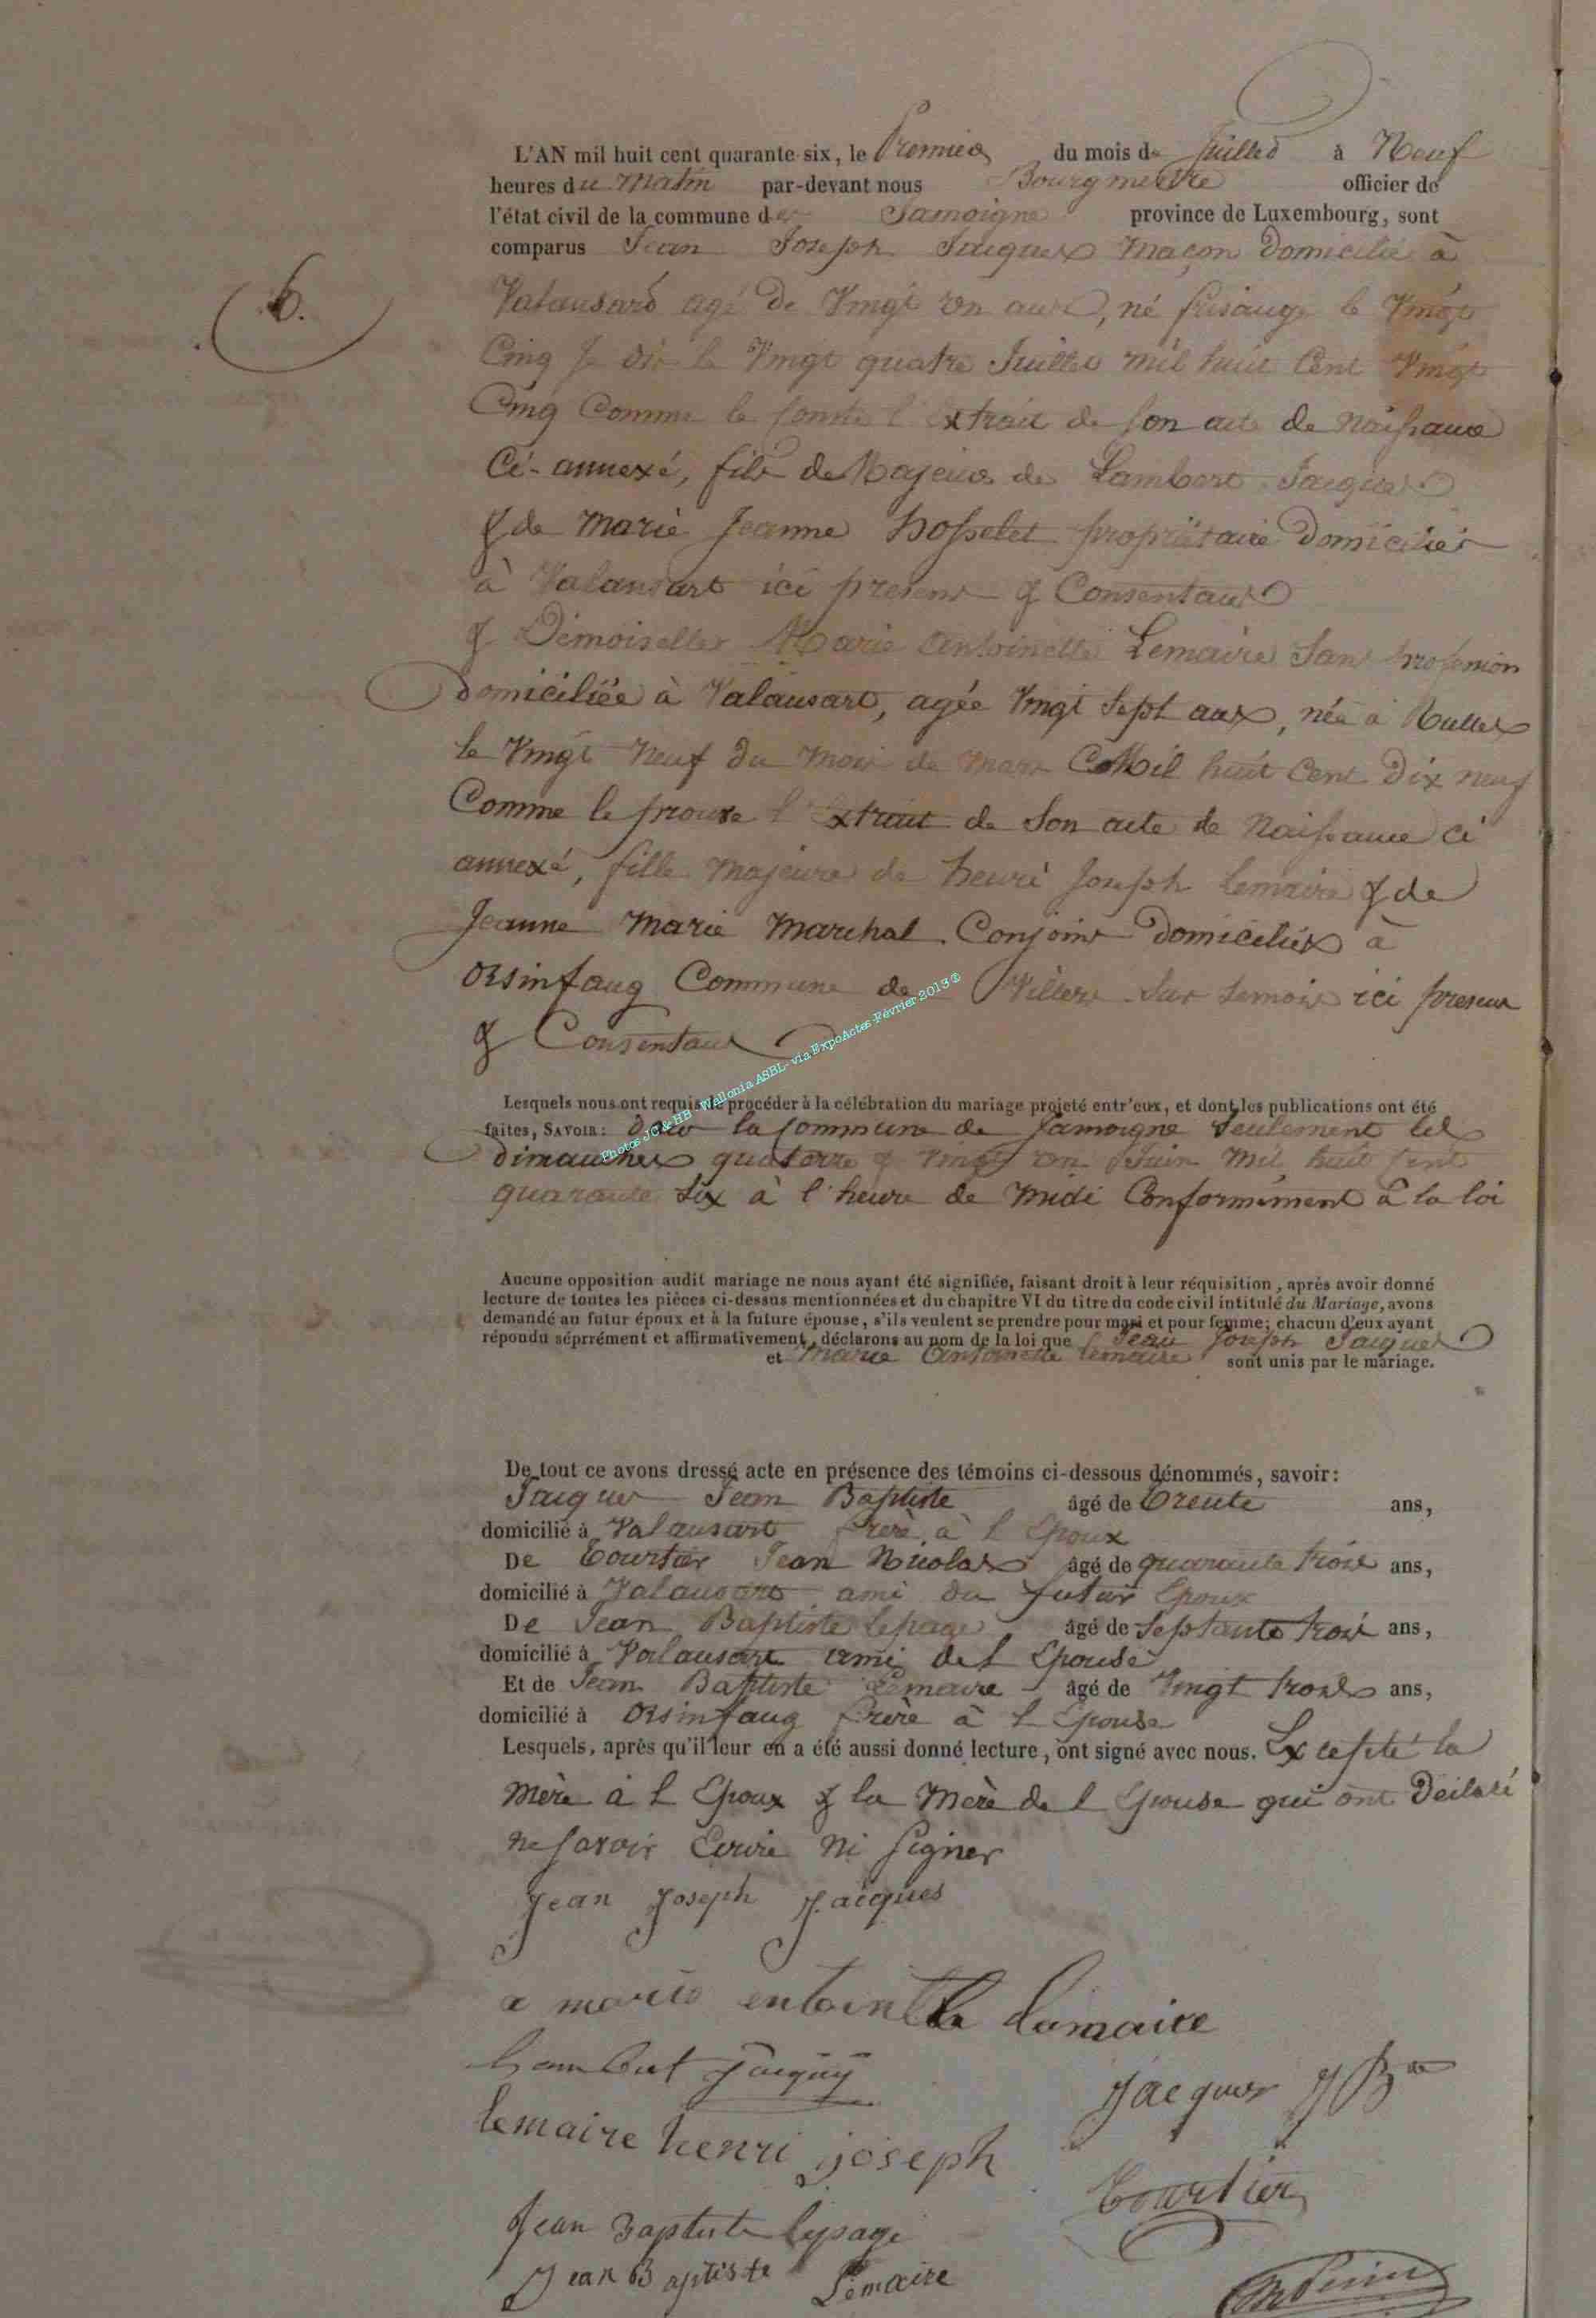 L'AN mil huit cent quarante-six, le Premier du mois de Juillet à Neuf
heures du Matin par-devant nous Bourgmestre officier de
l'état civil de la commune de Jamoigne province de Luxembourg, sont
comparus Jean Joseph Jacques Maçon Domicilié à
6.
Valansart agé de Vingt un ans, né frisange le Vingt
Cinq Je dis le Vingt quatre Juillet mil huit Cent Vingt
Cinq Comme le l'Extrait de son acte de Naissance
Ci-annexé, fils de Majeur de Lambert Jacques
& de Marie Jeanne hosselet propriétaire Domiciliés
à Valansart ici présent & Consentant
& Demoiselle Marie Antoinette Lemaire San profession
domiciliée à Valansart, agée Vingt Sept ans, née à Rulles
le Vingt Neuf du Mois de Mars Mil huit Cent Dix neuf
Comme le prouve l'Extrait de Son acte de Naissance ci
annexé, fille Majeure de henri Joseph Lemaire & de
Jeanne Marie Marchal Conjoint domiciliés à
Orsinfaug Commune de Villers Sur Semois ici présent
& Consentant
Photos JC & HB - Wallonia ASBL - via ExpoActes-Février 2013®
Lesquels nous ont requis de procéder à la célébration du mariage projeté entr'eux, et dont les publications ont été
faites, SAVOIR: Dans la Commune de Jamoigne Seulement les
dimanches quatorze & vingt un Juin Mil huit Cent
quarante Six à l'heure de Midi Conformément à la loi
Aucune opposition audit mariage ne nous ayant été signifiée, faisant droit à leur réquisition, après avoir donné
lecture de toutes les pièces ci-dessus mentionnées et du chapitre VI du titre du code civil intitulé du Mariage, avons
demandé au futur époux et à la future épouse, s'ils veulent se prendre pour mari et pour femme; chacun d'eux ayant
répondu séprrément et affirmativement, déclarons au nom de la loi que Jean Joseph Jacques
et Marie Antoinette Lemaire sont unis par le mariage.
De tout ce avons dressé acte en présence des témoins ci-dessous dénommés, savoir:
Jacques Jean Baptiste âgé de trente ans,
domicilié à Valansart frère à l Epoux
De Tourtier Jean Nicolas âgé de quarante trois ans,
domicilié à Valansart ami du futur Epoux
De Jean Baptiste Lepage âgé de Septante trois ans,
domicilié à Valansart ami de l Epouse
Et de Jean Baptiste Lemaire âgé de Vingt trois ans,
domicilié à Orsinfaug frère à l Epouse
Lesquels, après qu'il leur en a été aussi donné lecture, ont signé avec nous. Excepté la
Mère à l Epoux & la Mère de l Epouse qui ont Déclaré
ne savoir Ecrire Ni Signer
Jean Joseph Jacques
marie entoinette Lamaire
Lambert Jacques
Jacques J Bte
lemaire henri joseph
Tourtier
Jean Baptiste lepage
Jean Baptiste Lemaire